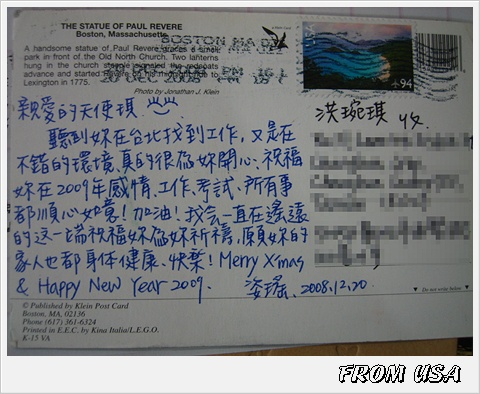 THE STATUE OF PAUL REVERE
Boston, Massachusetts.
A handsome statue of Paul Revere graces a small
park in front of the Old North Church. Two lanterns
hung in the church steeple signaled the redcoats
advance and started Revere on his midnight ride to
Lexington in 1775.
Photo by Jonathan J. Klein
BOSTON MA
20 DEC 2008 PM
94
親愛的天使琪.
聽到妳在台北找到工作,又是在
不錯的環境,真的很為妳開心、祝福
妳在2009年感情、工作、考試、所有事
都順心如意!加油!我會一直在遙遠
的這一端祝福妳為妳祈禱,願妳的
家人也都身体健康、快樂! Merry X'mas
& Happy New Year 2009.
姿瑤. 2008.12.20
洪琬琪 收.
Do not write below
© Published by Klein Post Card
Boston, MA. 02136
Phone (617) 361-6324
Printed in E.E.C. by Kina Italia/L.E.G.O.
K-15 VA
FROM USA